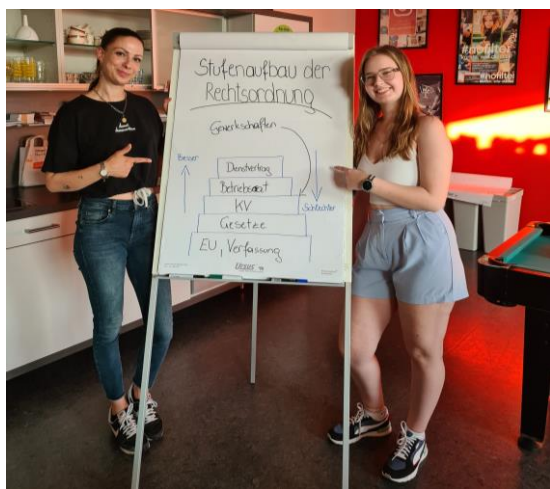 Stufenaufbau der
Rechtsordnung
Gewerkschaften
Besser
Dienstvertrag
Betriebsrat
KV
Schlechter
Gesetze
EU, Verfassung
#nofilter
#nofilter